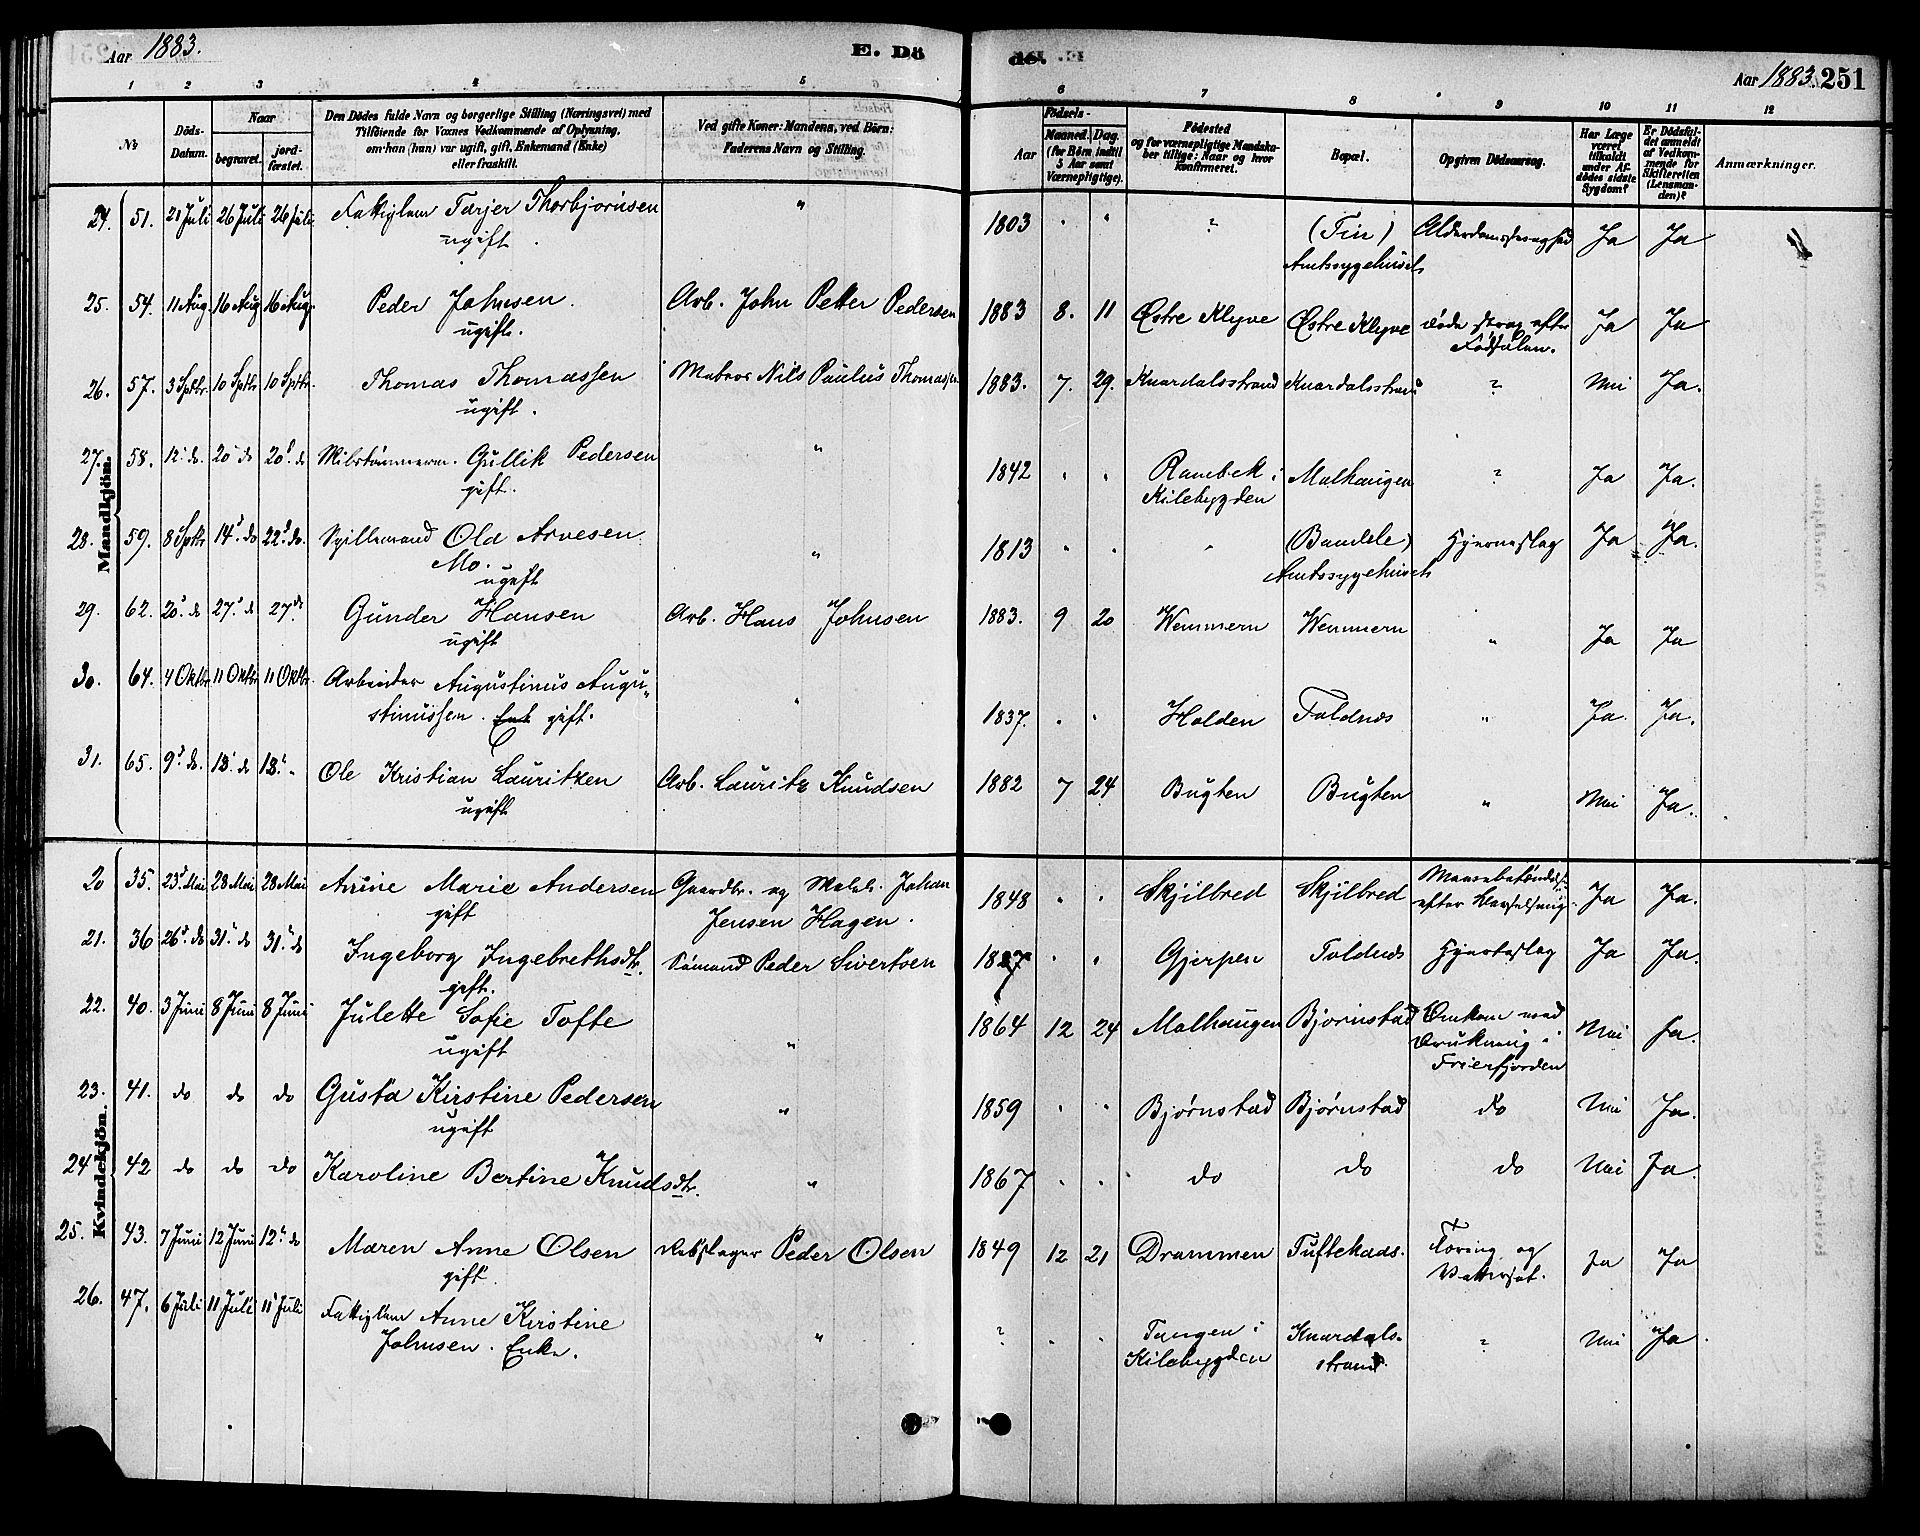 Aar 1883. E. Dö
de. Aar 1883. 251
1 2 3 4 5 6 7 8 9 10 11 12
No Döds-Datum. Naar begravet. jord-fæstet. Den Dödes fulde Navn og borgerlige Stilling (Næringsvei) med Tilföiende for Voxnes Vedkommende af Oplysning, om han (hun) var ugift, gift, Enkemand (Enke) eller fraskilt. Ved gifte Koner: Mandens, ved Börn: Faderens Navn og Stilling. Födsels- Aar Maaned. Dag. (for Börn indtil 5 Aar samt Værnepligtige). Födested og for værnepligtige Mandskaber tillige: Naar og hvor konfirmeret. Bopæl. Opgiven Dödsaarsag. Har Læge været tilkaldt under Afdödes sidste Sygdom? Er Dödsfaldet anmeldt af Vedkommende for Skifteretten (Lensmanden)? Anmærkninger.
Mandkjön.
24. 51. 21 Juli 26 Juli 26 Juli Fattiglem Tarjer Thorbjørnsen " 1803 " " ? (Tin) Alderdomssvaghed Ja Ja
ugift. Amtssygehuset
25. 54. 11 Aug. 16 Aug 16 Aug. Peder Johnsen. Arb. John Petter Pedersen 1883 8. 11 Østre Klyve Østre Klyve døde strax efter Ja Ja
ugift. Fødselen.
26. 57. 3 Sptbr 10 Sptbr 10 Sptbr. Thomas Thomassen Matros Nils Paulus Thomassen 1883. 7. 29. Knardalsstrand Knardalsstrand ? Nei Ja.
ugift.
27. 58. 12 do. 20 do 20 do Gullik Pedersen " 1842 " " Rambek i Malhaugen ? Ja Ja.
gift. Kilebygden
28. 59. 8 Sptbr 14 do 22 do. Spillemand Ola Arvesen " 1813 " " " (Bandele) Hjerneslag Ja Ja.
Mo. ugift Amtssygehuset
29. 62. 20 do 27 do 27 do Gunder Hansen Arb. Hans Johnsen 1883. 9 20 Wemmern Wemmern " Ja Ja
ugift
30. 64. 4 Oktbr 11 Oktbr 11 Oktbr. Arbeider Augustinus Augu- " 1837. " " Holden Toldnes " Ja. Ja.
stinussen. Enk gift.
31. 65. 9 do. 13 do 13 " Ole Kristian Lauritzen Arb. Lauritz Knudsen 1882 7 24 Bugten Bugten " Nei Ja.
ugift
Kvindekjön.
20 35. 23 Mai 28 Mai 28 Mai Anne Marie Andersen Gaardbr. og Johan 1848 " " Skjilbred Skjilbred Ja Ja.
gift Jensen Hagen. efter
21. 36 26 do 31 do 31 do Ingeborg Ingebrethsdtr. Sømand Peder Sivertsen 1827 " " Gjerpen Toldnes Hjerteslag Ja Ja.
gift.
22. 40. 3 Juni 8 Juni 8 Juni Julette Sofie Tofte " 1864 12 24 Malhaugen Bjørnstad Omkom ved Nei Ja.
ugift Drukning i
Frierfjorden
23. 41. do do do Gusta Kirstine Pedersen " 1859 " " Bjørnstad Bjørnstad do Nei Ja.
ugift
24 42 do do do Karoline Bertine Knudsdtr. " 1867 " " do do do Nei Ja.
25. 43. 7 Juni 12 Juni 12 do Maren Anne Olsen Rebslager Peder Olsen 1849 12 21 Drammen Tuftekaas. Tæring og Ja Ja
gift. Vattersot.
26. 47. 6 Juli 11 Juli 11 Juli Fattiglem Anne Kirstine " ? " " Tangen i Knardals- ? Nei Ja.
Johnsen. Enke. Kilebygden strand